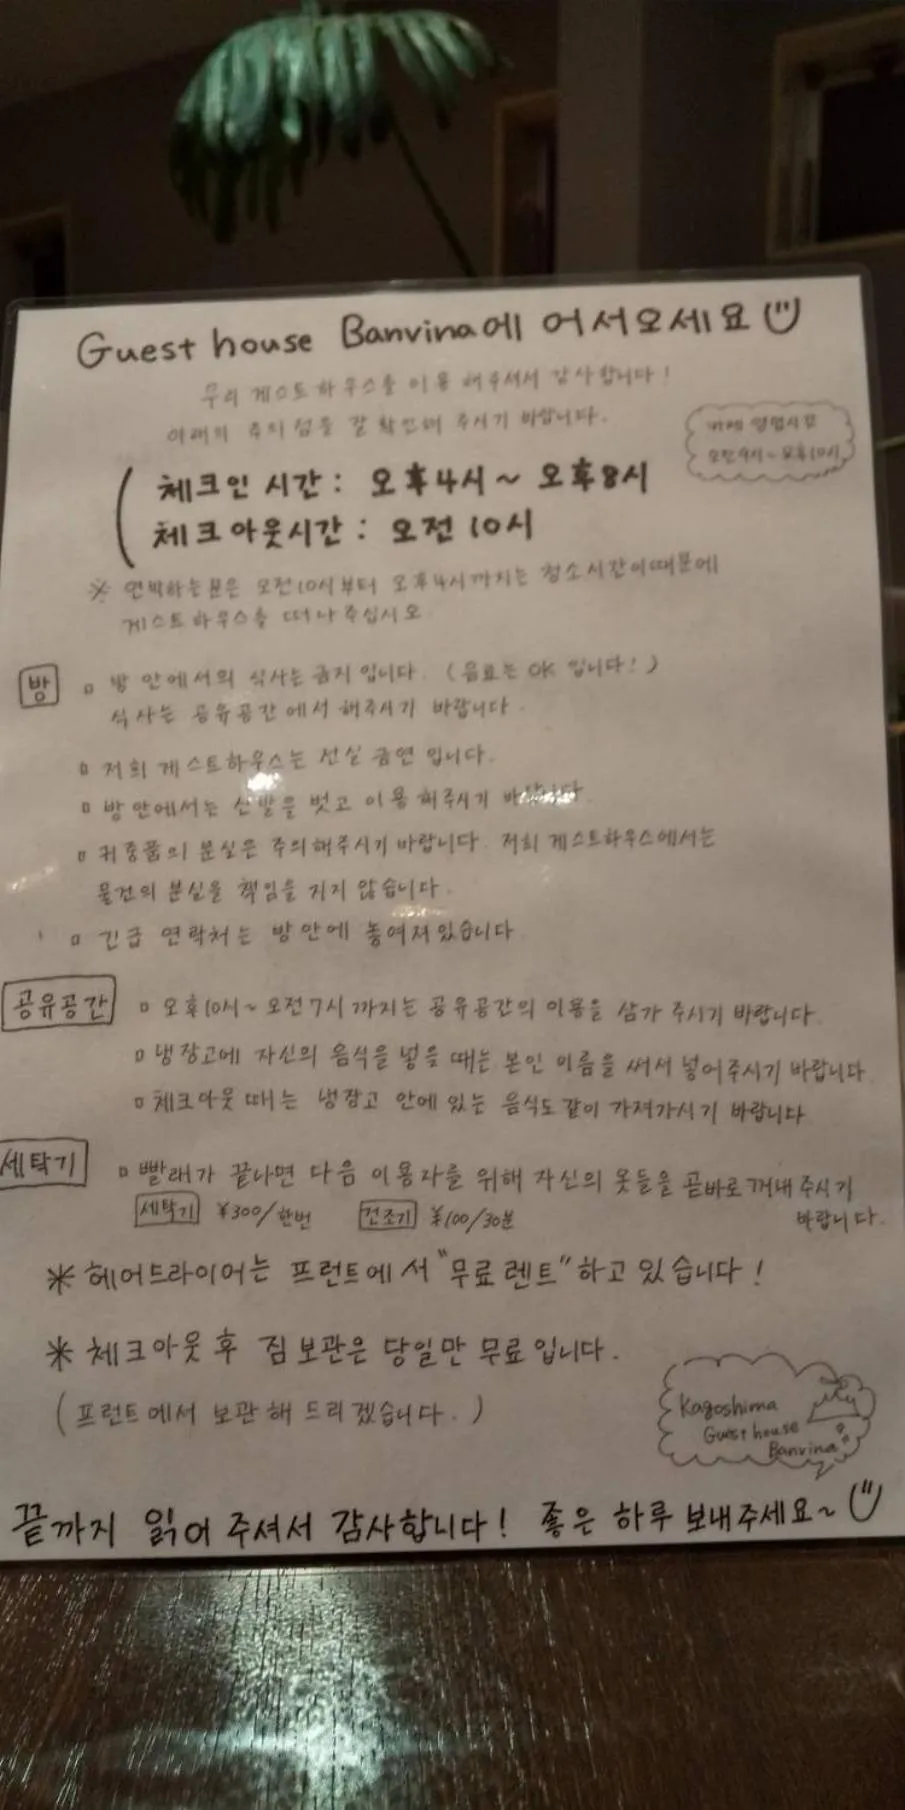 Guest house Banvina에 어서오세요
우리 게스트하우스를 이용 해주셔서 감사합니다!
아래의 주의점을 잘 확인해 주시기 바랍니다.
카페 영업시간
오전9시~오후10시
체크인 시간: 오후4시~ 오후8시
체크아웃시간: 오전 10시
※ 연박하는분은 오전10시부터 오후4시까지는 청소시간이때문에
게스트하우스를 떠나주십시오.
방
▫ 방 안에서의 식사는 금지 입니다. (음료는 OK 입니다!)
식사는 공유공간에서 해주시기 바랍니다.
▫ 저희 게스트하우스는 전실 금연 입니다.
▫ 방 안에서는 신발을 벗고 이용 해주시기 바랍니다.
▫ 귀중품의 분실은 주의해주시기 바랍니다. 저희 게스트하우스에서는
물건의 분실을 책임을 지지 않습니다.
▫ 긴급 연락처는 방 안에 놓여져있습니다
공유공간
▫ 오후10시~오전7시 까지는 공유공간의 이용을 삼가 주시기 바랍니다.
▫ 냉장고에 자신의 음식을 넣을 때는 본인 이름을 써서 넣어주시기 바랍니다
▫ 체크아웃 때는 냉장고 안에 있는 음식도같이 가져가시기 바랍니다
세탁기
▫ 빨래가 끝나면 다음 이용자를 위해 자신의 옷들을 곧바로꺼내 주시기
바랍니다.
세탁기 ¥300/한번 건조기 ¥100/30분
※ 헤어드라이어는 프런트에서 "무료렌트"하고 있습니다!
※ 체크아웃 후 짐 보관은 당일만 무료입니다.
(프런트에서 보관 해 드리겠습니다.)
Kagoshima
Guest house
Banvina
끝까지 읽어 주셔서 감사합니다! 좋은 하루 보내주세요~